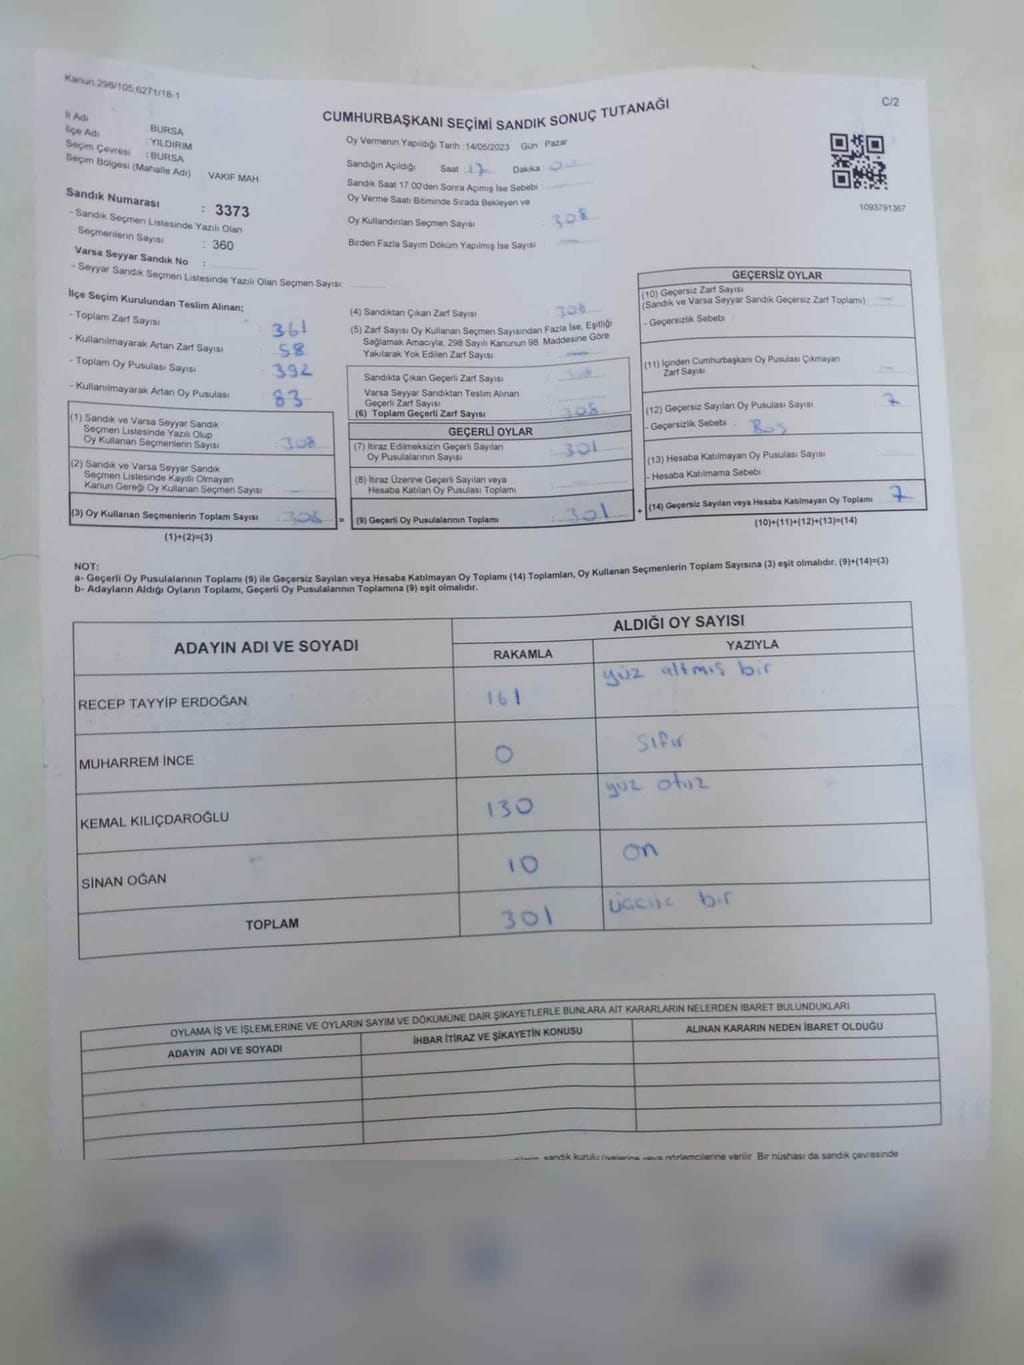 Kanun 298/105,6271/18-1
C/2
CUMHURBAŞKANI SEÇİMİ SANDIK SONUÇ TUTANAĞI
İl Adı : BURSA
İlçe Adı : YILDIRIM
Seçim Çevresi : BURSA
Seçim Bölgesi (Mahalle Adı) VAKIF MAH.
Sandık Numarası : 3373
- Sandık Seçmen Listesinde Yazılı Olan
Seçmenlerin Sayısı : 360
Varsa Seyyar Sandık No :
- Seyyar Sandık Seçmen Listesinde Yazılı Olan Seçmen Sayısı:
Oy Vermenin Yapıldığı Tarih :14/05/2023 Gün Pazar
Sandığın Açıldığı Saat 17 Dakika 00
Sandık Saat 17:00'den Sonra Açımış İse Sebebi
Oy Verme Saati Bitiminde Sırada Bekleyen ve
Oy Kullandırılan Seçmen Sayısı : 308
Birden Fazla Sayım Döküm Yapılmış İse Sayısı :
1093791367
İlçe Seçim Kurulundan Teslim Alınan;
- Toplam Zarf Sayısı : 361
- Kullanılmayarak Artan Zarf Sayısı : 58
- Toplam Oy Pusulası Sayısı : 392
- Kullanılmayarak Artan Oy Pusulası : 83
(1) Sandık ve Varsa Seyyar Sandık
Seçmen Listesinde Yazılı Olup
Oy Kullanan Seçmenlerin Sayısı : 308
(2) Sandık ve Varsa Seyyar Sandık
Seçmen Listesinde Kayıtlı Olmayan
Kanun Gereği Oy Kullanan Seçmen Sayısı :
(3) Oy Kullanan Seçmenlerin Toplam Sayısı 308
(1)+(2)=(3)
(4) Sandıktan Çıkan Zarf Sayısı : 308
(5) Zarf Sayısı Oy Kullanan Seçmen Sayısından Fazla İse, Eşitliği
Sağlamak Amacıyla, 298 Sayılı Kanunun 98. Maddesine Göre
Yakılarak Yok Edilen Zarf Sayısı :
Sandıkta Çıkan Geçerli Zarf Sayısı : 308
Varsa Seyyar Sandıktan Teslim Alınan
Geçerli Zarf Sayısı :
(6) Toplam Geçerli Zarf Sayısı : 308
GEÇERLİ OYLAR
(7) İtiraz Edilmeksizin Geçerli Sayılan
Oy Pusulalarının Sayısı : 301
(8) İtiraz Üzerine Geçerli Sayılan veya
Hesaba Katılan Oy Pusulası Toplamı :
= (9) Geçerli Oy Pusulalarının Toplamı : 301
GEÇERSİZ OYLAR
(10) Geçersiz Zarf Sayısı
(Sandık ve Varsa Seyyar Sandık Geçersiz Zarf Toplamı) :
- Geçersizlik Sebebi :
(11) İçinden Cumhurbaşkanı Oy Pusulası Çıkmayan
Zarf Sayısı :
(12) Geçersiz Sayılan Oy Pusulası Sayısı : 7
- Geçersizlik Sebebi : Boş
(13) Hesaba Katılmayan Oy Pusulası Sayısı :
- Hesaba Katılmama Sebebi :
+ (14) Geçersiz Sayılan veya Hesaba Katılmayan Oy Toplamı 7
(10)+(11)+(12)+(13)=(14)
NOT:
a- Geçerli Oy Pusulalarının Toplamı (9) ile Geçersiz Sayılan veya Hesaba Katılmayan Oy Toplamı (14) Toplamları, Oy Kullanan Seçmenlerin Toplam Sayısına (3) eşit olmalıdır. (9)+(14)=(3)
b- Adayların Aldığı Oyların Toplamı, Geçerli Oy Pusulalarının Toplamına (9) eşit olmalıdır.
ADAYIN ADI VE SOYADI
ALDIĞI OY SAYISI
RAKAMLA YAZIYLA
RECEP TAYYİP ERDOĞAN 161 yüz altmış bir
MUHARREM İNCE 0 sıfır
KEMAL KILIÇDAROĞLU 130 yüz otuz
SİNAN OĞAN 10 on
TOPLAM 301 üçyüz bir
OYLAMA İŞ VE İŞLEMLERİNE VE OYLARIN SAYIM VE DÖKÜMÜNE DAİR ŞİKAYETLERLE BUNLARA AİT KARARLARIN NELERDEN İBARET BULUNDUKLARI
ADAYIN ADI VE SOYADI İHBAR İTİRAZ VE ŞİKAYETİN KONUSU ALINAN KARARIN NEDEN İBARET OLDUĞU
sandık kurulu üyelerine veya gözlemcilerine verilir. Bir nüshası da sandık çevresinde